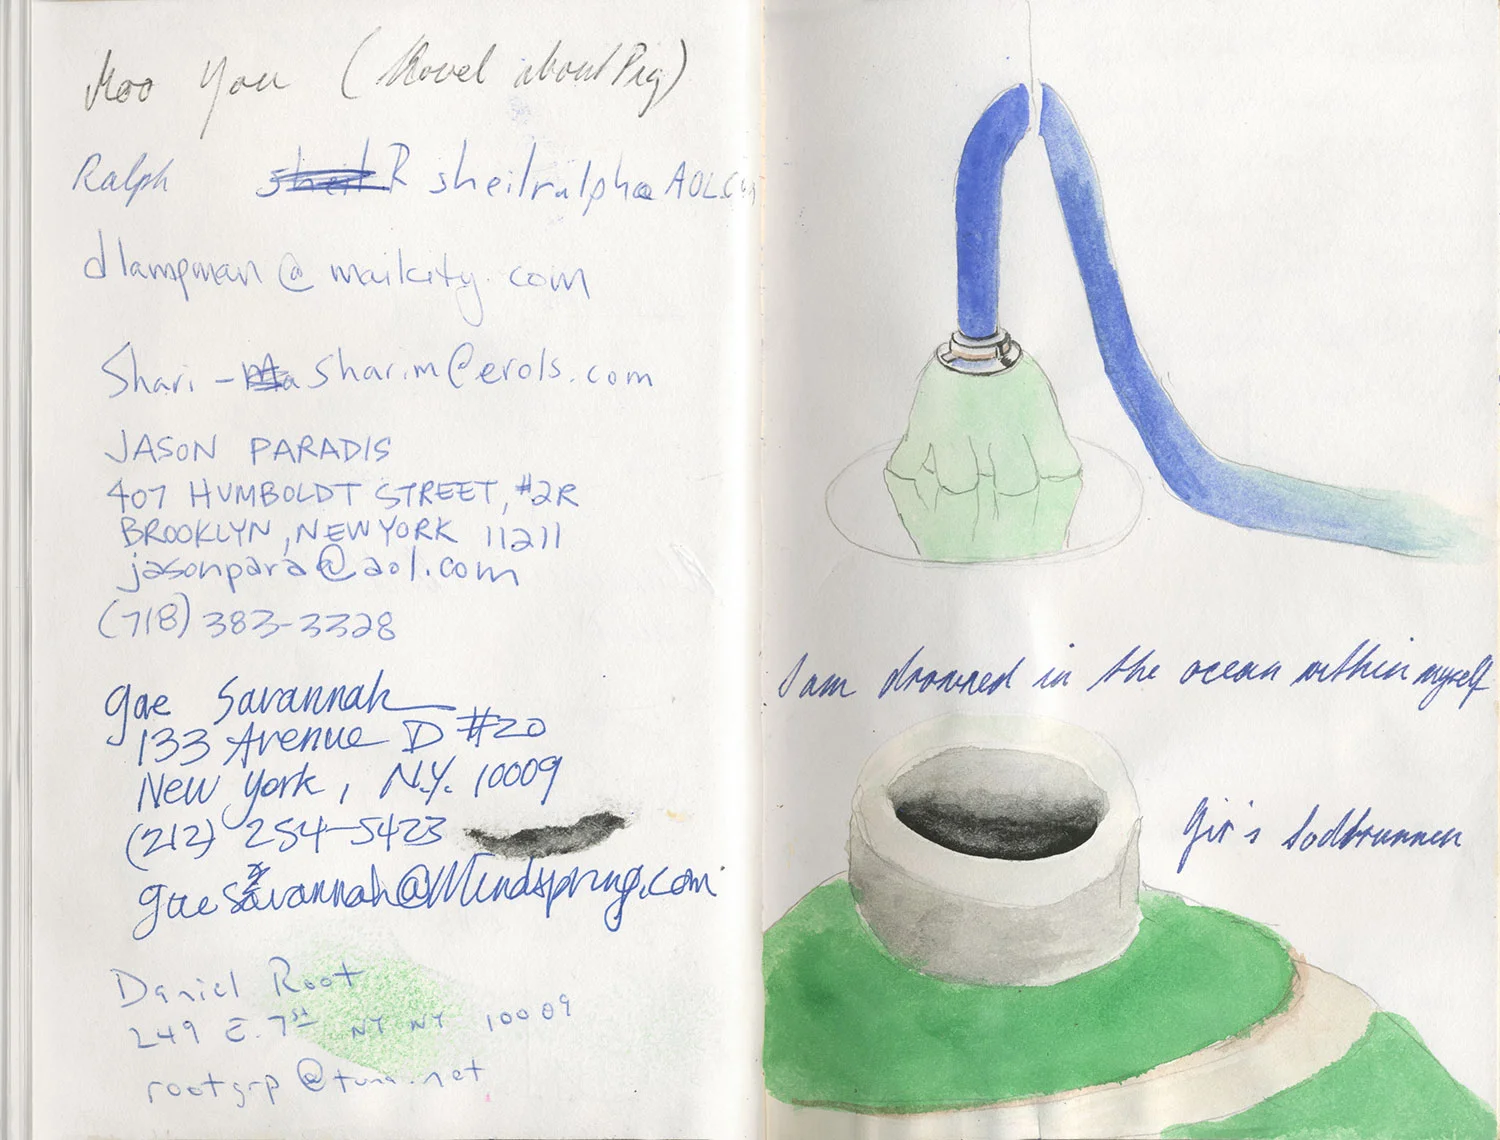 Moo You (Novel about Pig)
Ralph R sheilralph@AOL.Com
dlampman@mailcity.com
Shari - sharim@erols.com
JASON PARADIS
407 HUMBOLDT STREET, #2R
BROOKLYN, NEW YORK 11211
jasonpara@aol.com
(718) 383-3328
gae Savannah
133 Avenue D #20
New York, N.Y. 10009
(212) 254-5423
gaesavannah@Mindspring.com
Daniel Root
249 E. 7st NY NY 10009
rootgrp@tuna.net
I am drowned in the ocean within myself
Gir's Sodbrunnen